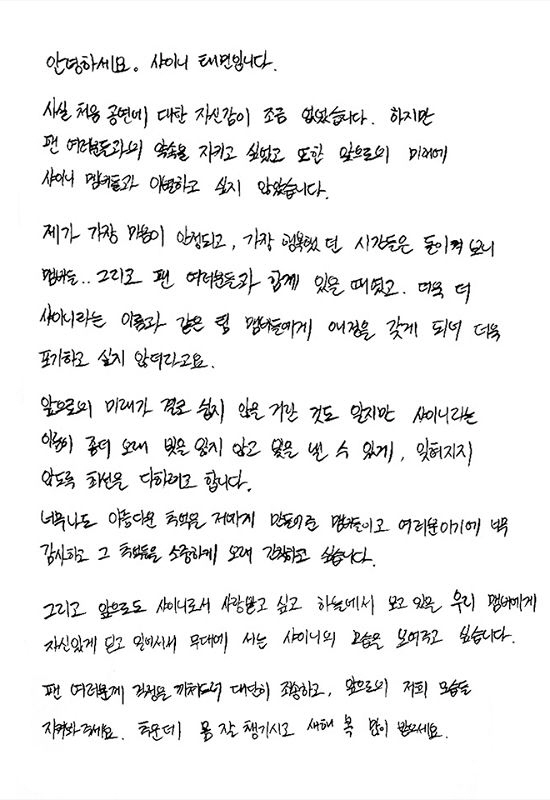 안녕하세요. 샤이니 태민입니다.
사실 처음 공연에 대한 자신감이 조금 없었습니다. 하지만
팬 여러분들과의 약속을 지키고 싶었고 또한 앞으로의 미래에
샤이니 멤버들과 이별하고 싶지 않았습니다.
제가 가장 마음이 안정되고, 가장 행복했던 시간들은 돌이켜 보니
멤버들.. 그리고 팬 여러분들과 함께 있을 때였고. 더욱 더
샤이니라는 이름과 같은 팀 멤버들에게 애정을 갖게 되어 더욱
포기하고 싶지 않더라고요.
앞으로의 미래가 결코 쉽지 않을 거란 것도 알지만 샤이니라는
이름이 좀더 오래 빛을 잃지 않고 빛을 낼 수 있게, 잊혀지지
않도록 최선을 다하려고 합니다.
너무나도 아름다운 추억은 저에게 만들어준 멤버들이고 여러분이기에 너무
감사하고 그 추억들을 소중하게 오래 간직하고 싶습니다.
그리고 앞으로도 샤이니로서 사랑받고 싶고 하늘에서 보고 있을 우리 멤버에게
자신있게 딛고 일어서서 무대에 서는 샤이니의 모습을 보여주고 싶습니다.
팬 여러분께 걱정을 끼쳐드려 대단히 죄송하고, 앞으로의 저희 모습들
지켜봐주세요. 추운데 몸 잘 챙기시고 새해 복 많이 받으세요.